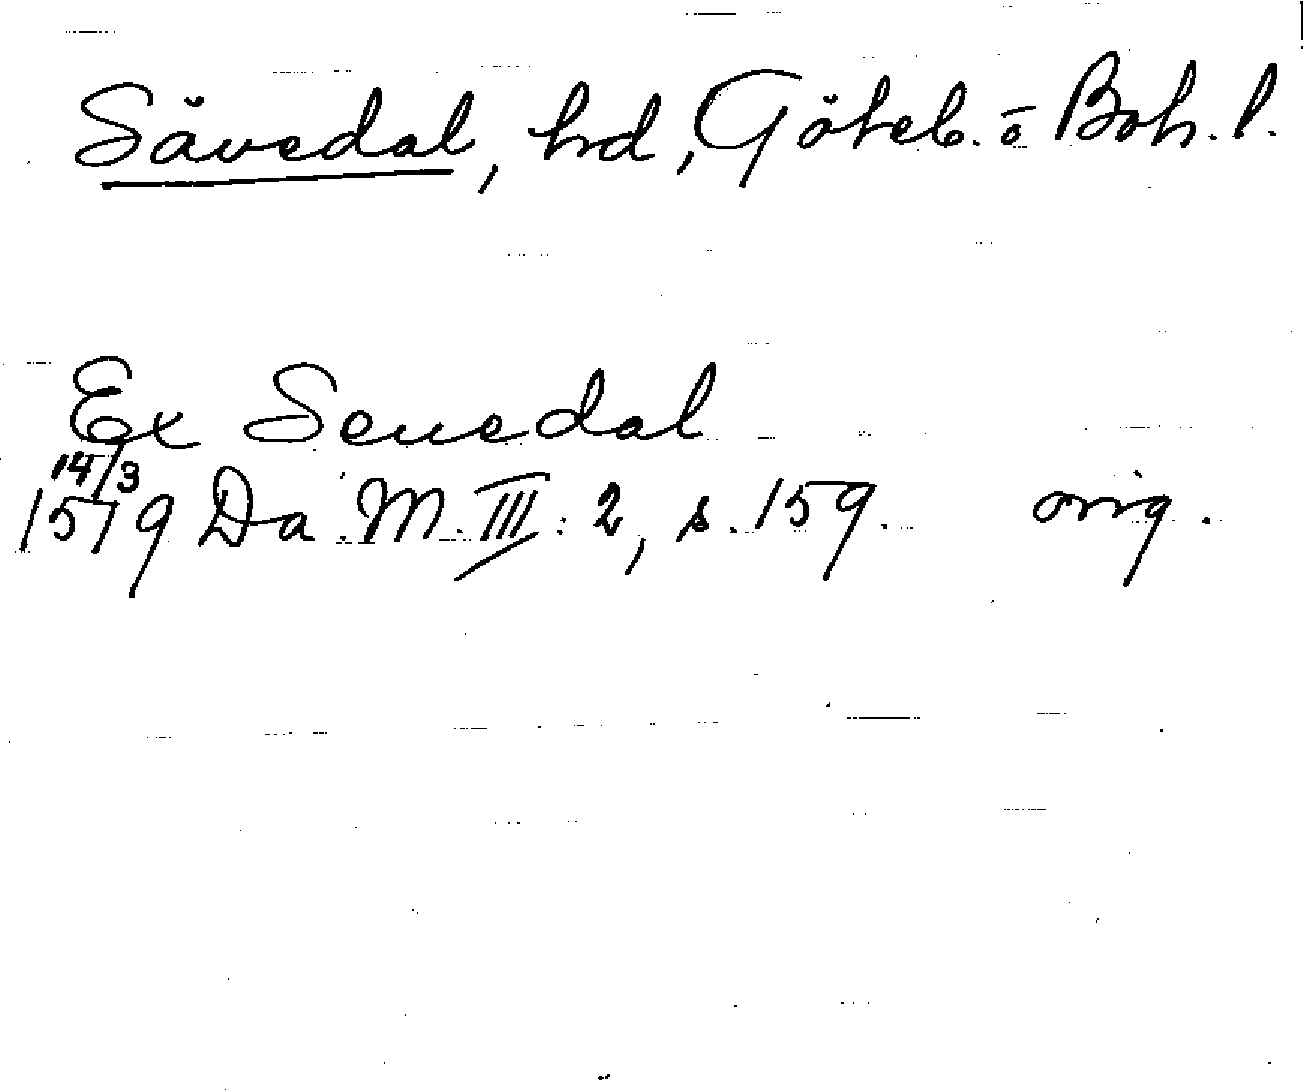 Sävedal, hd, Göteb. o Boh. l.
Ex Seuedal
14/3
1519 Da M. III: 2, s. 159. orig.